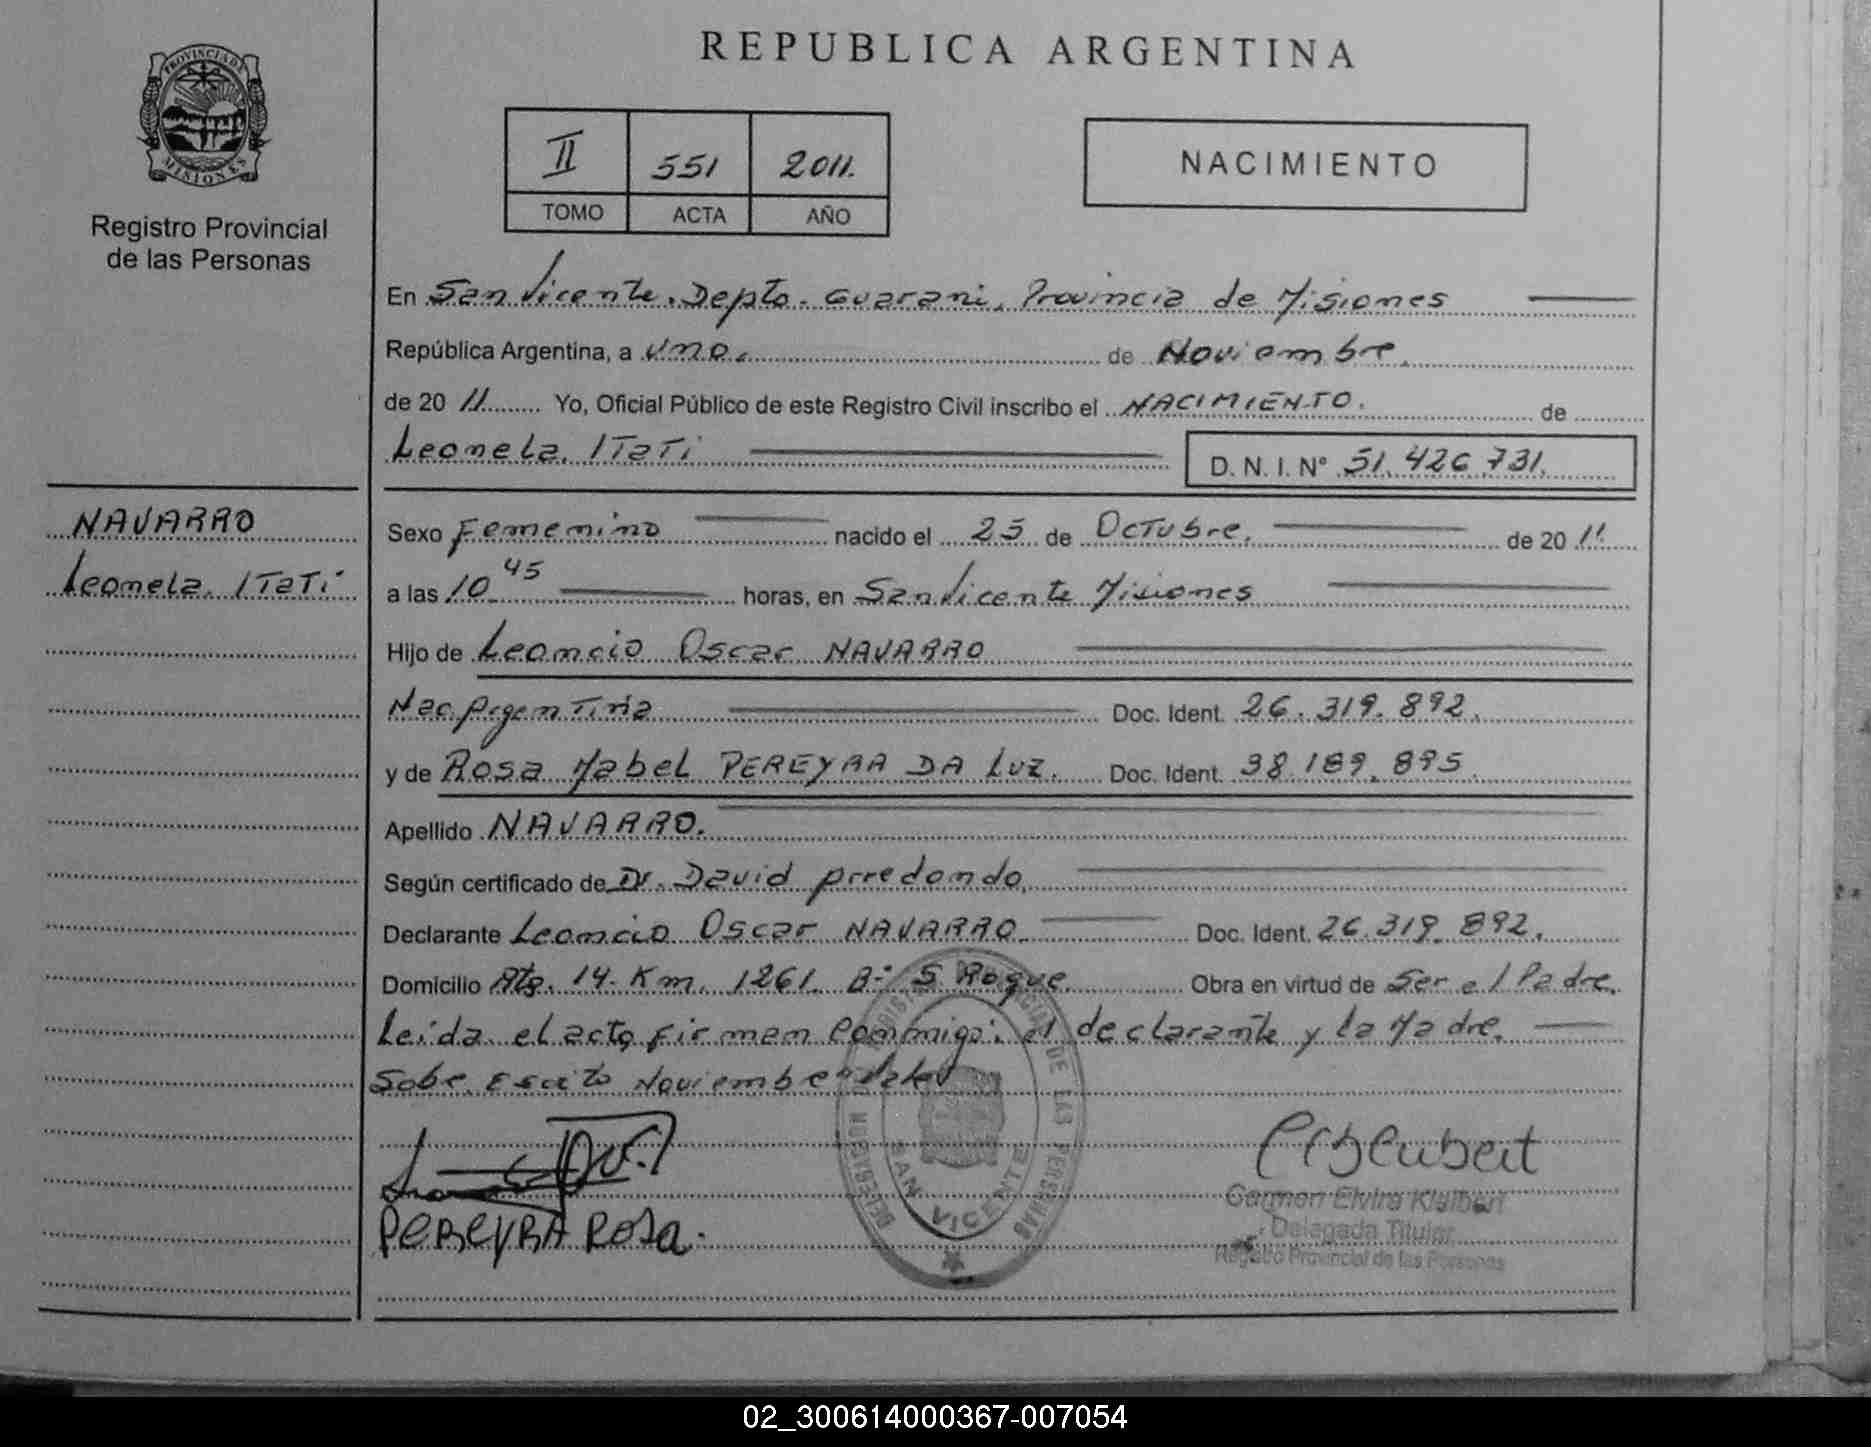 REPUBLICA ARGENTINA
PROVINCIA DE
MISIONES
Registro Provincial
de las Personas
II 551 2011.
TOMO ACTA AÑO
NACIMIENTO
En San Vicente. Depto. Guarani, Provincia de Misiones
República Argentina, a uno. de Noviembre.
de 20 11 Yo, Oficial Público de este Registro Civil inscribo el NACIMIENTO. de
Leonela Itati D. N. I. Nº 51.426.731.
NAVARRO
Leonela Itati
Sexo Femenino nacido el 25 de Octubre. de 20 11
a las 10 45 horas, en San Vicente Misiones
Hijo de Leoncio Oscar NAVARRO
Nac. Argentina Doc. Ident. 26.319.892.
y de Rosa Mabel PEREYRA DA Luz. Doc. Ident. 38.189.895.
Apellido NAVARRO.
Según certificado de Dr. David Arredondo,
Declarante Leoncio Oscar NAVARRO Doc. Ident. 26.319.892.
Domicilio Rta. 14. Km. 1261. Bº S Roque. Obra en virtud de Ser el Padre.
Leida el acta firman conmigo: el declarante y la Madre.
Sobe Escrito Noviembre
PEREYRA ROSA.
SAN VICENTE
Carmen Elvira Klaibert
Delegada Titular
Registro Provincial de las Personas
02_300614000367-007054